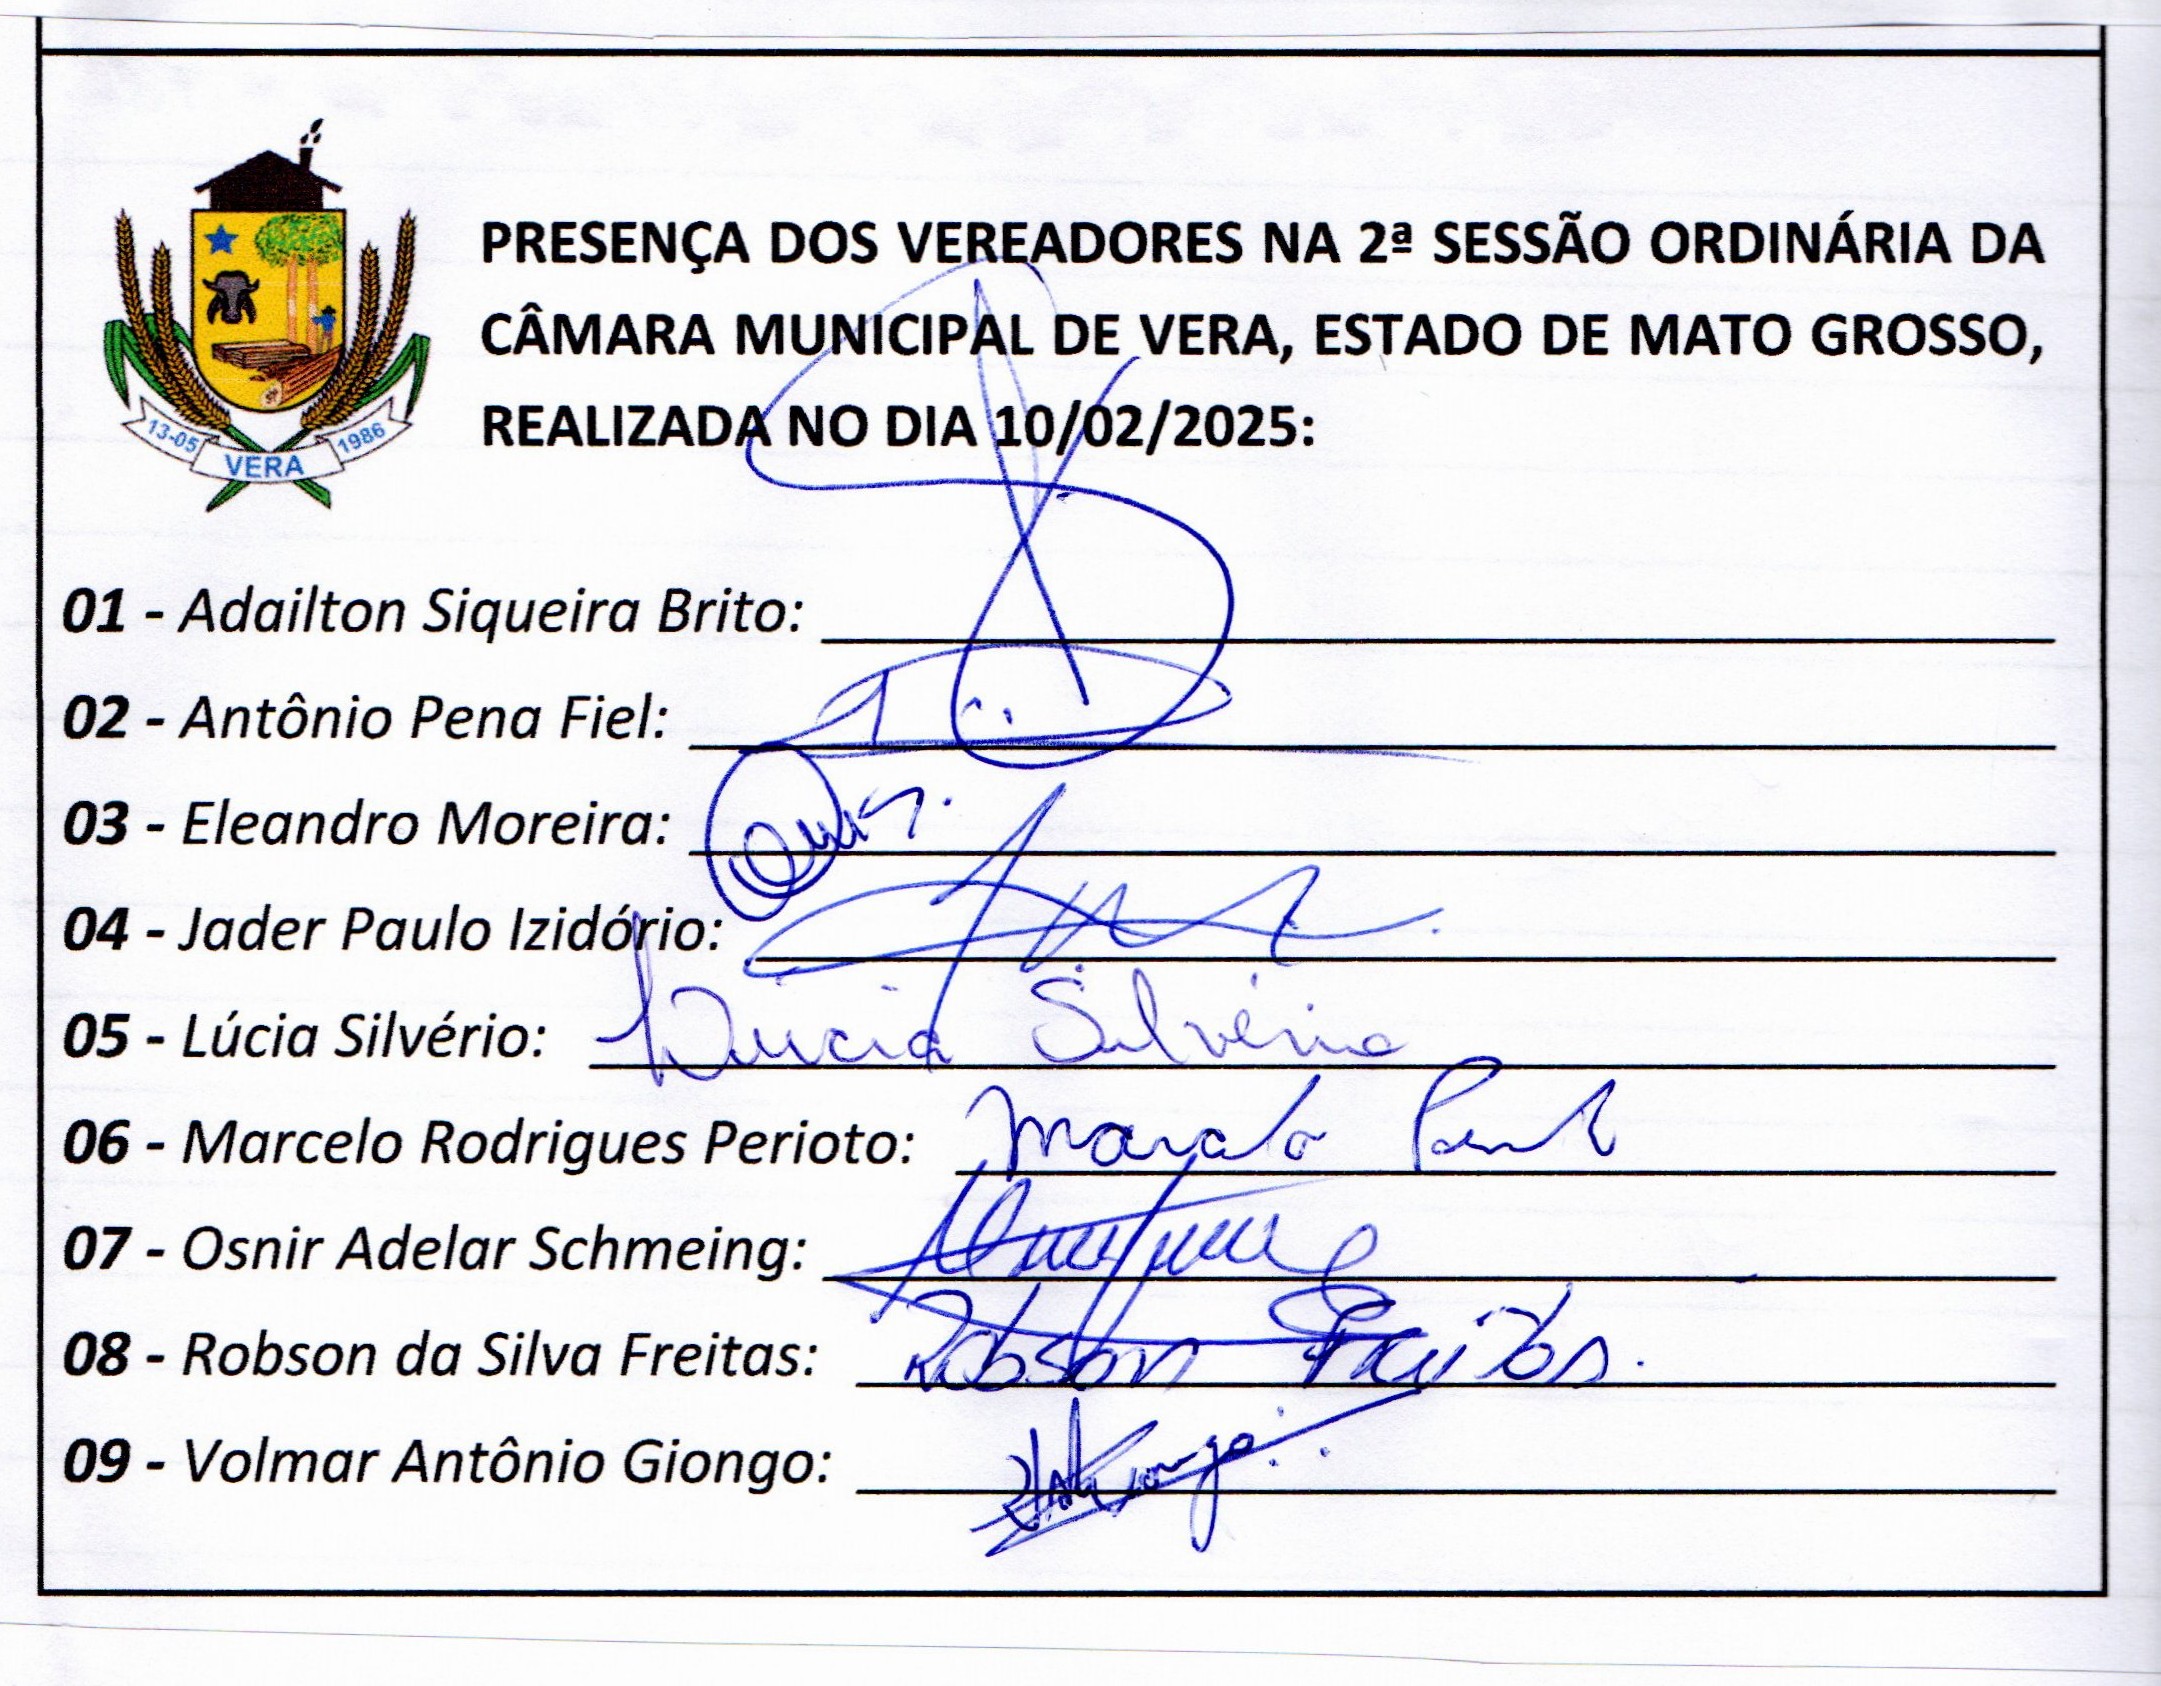 PRESENÇA DOS VEREADORES NA 2ª SESSÃO ORDINÁRIA DA
CÂMARA MUNICIPAL DE VERA, ESTADO DE MATO GROSSO,
REALIZADA NO DIA 10/02/2025:
13-05 VERA 1986
01 - Adailton Siqueira Brito:
02 - Antônio Pena Fiel:
03 - Eleandro Moreira:
04 - Jader Paulo Izidório:
05 - Lúcia Silvério: Lúcia Silvério
06 - Marcelo Rodrigues Perioto: Marcelo
07 - Osnir Adelar Schmeing:
08 - Robson da Silva Freitas: Robson Freitas.
09 - Volmar Antônio Giongo: